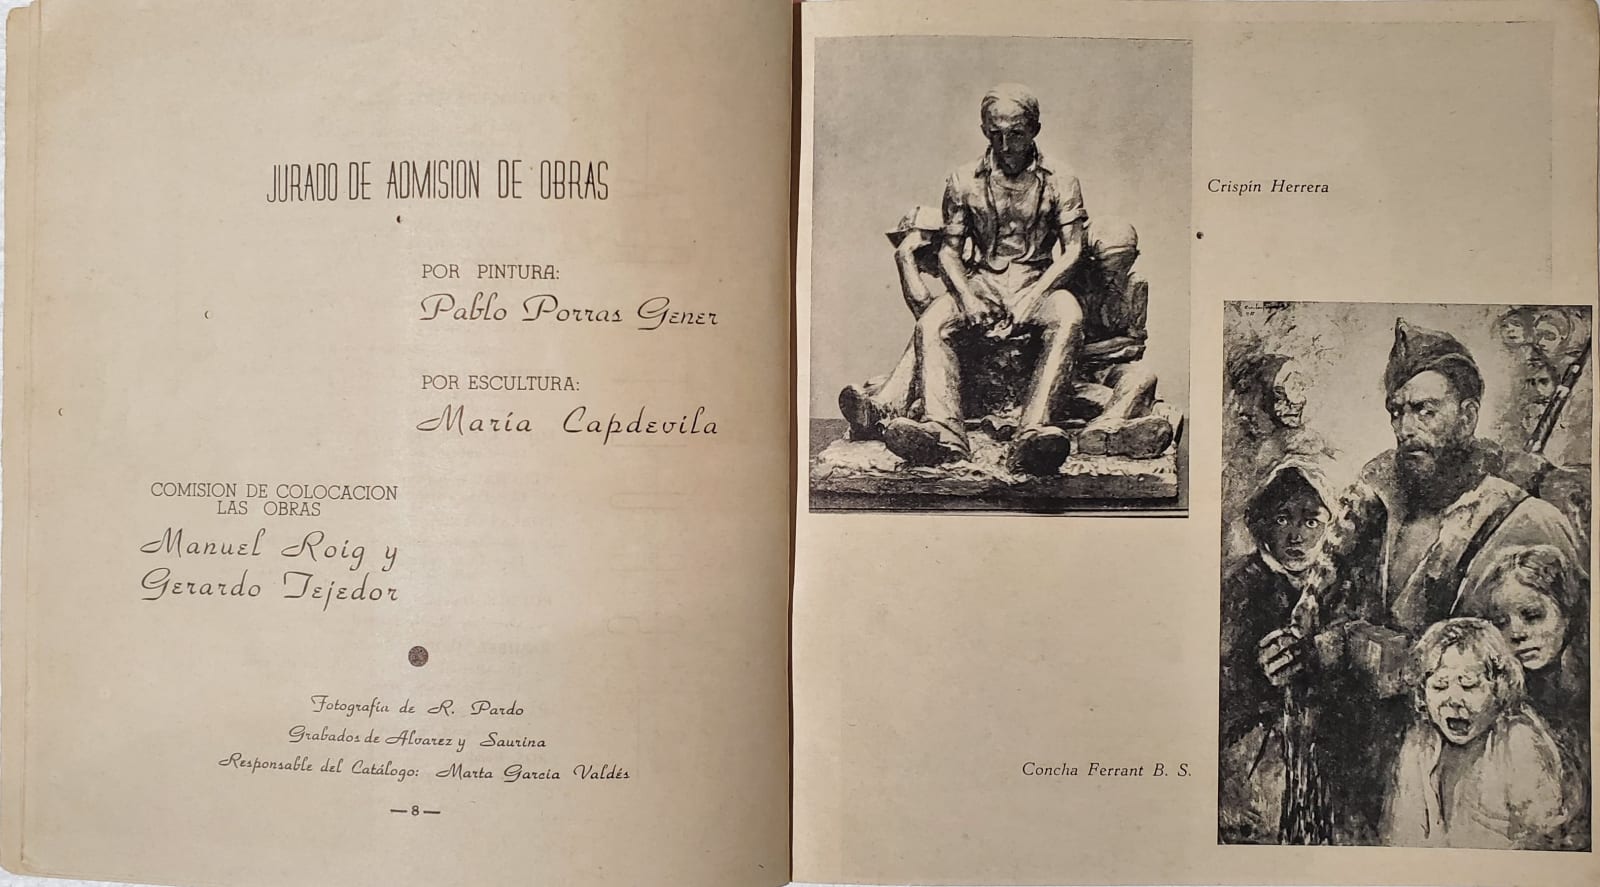 JURADO DE ADMISION DE OBRAS
POR PINTURA:
Pablo Porras Gener
POR ESCULTURA:
María Capdevila
COMISION DE COLOCACION
LAS OBRAS
Manuel Roig y
Gerardo Tejedor
Fotografía de R. Pardo
Grabados de Alvarez y Saurina
Responsable del Catálogo: Marta García Valdés
—8—
Crispín Herrera
Concha Ferrant B. S.